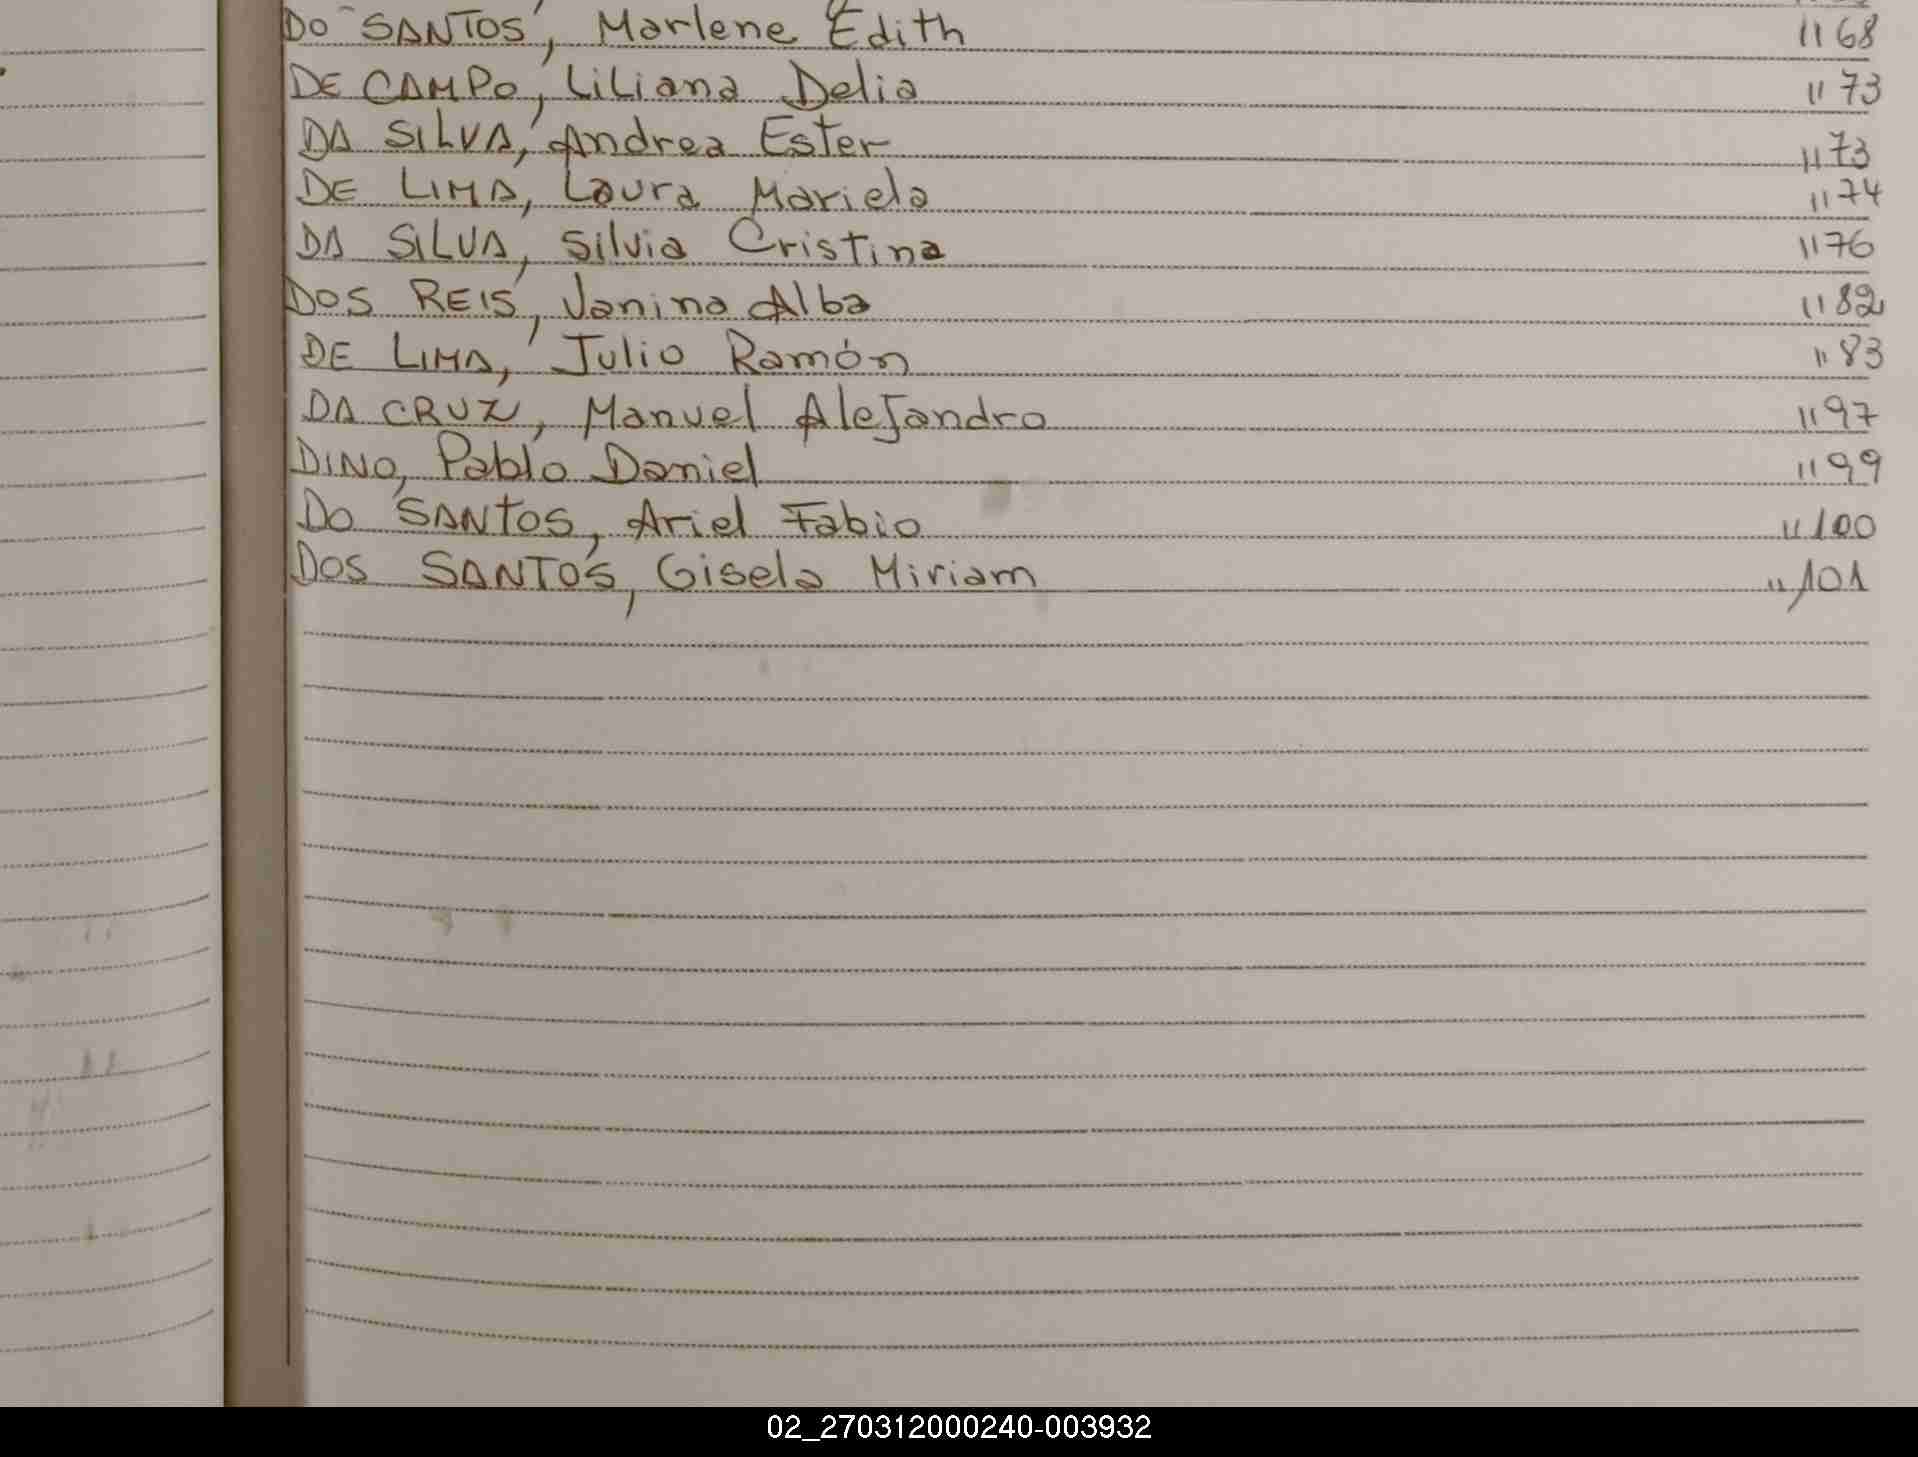 DO SANTOS, Marlene Edith " 68
DE CAMPO, Liliana Delia " 73
DA SILVA, Andrea Ester " 73
DE LIMA, Laura Mariela " 74
DA SILVA, Silvia Cristina " 76
DOS REIS, Janina Alba " 82
DE LIMA, Julio Ramón " 83
DA CRUZ, Manuel Alejandro " 97
DINO, Pablo Daniel " 99
DO SANTOS, Ariel Fabio " 100
DOS SANTOS, Gisela Miriam " 101
02_270312000240-003932